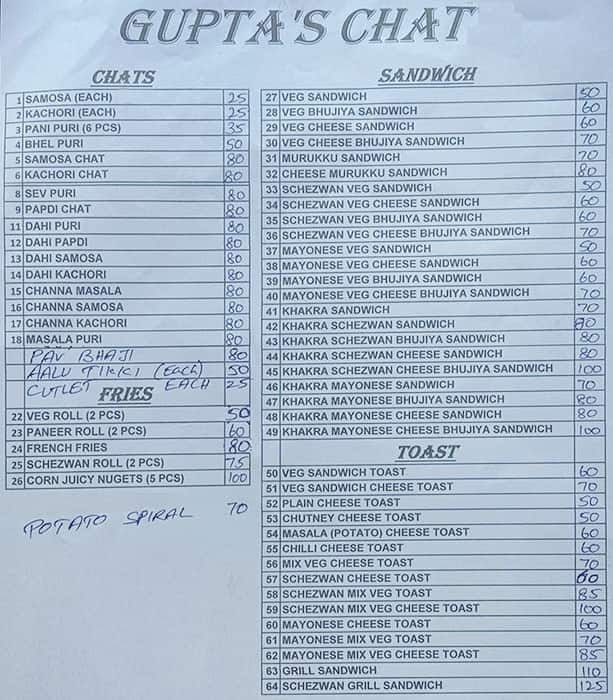 GUPTA'S CHAT
CHATS
1 SAMOSA (EACH) 25
2 KACHORI (EACH) 25
3 PANI PURI (6 PCS) 35
4 BHEL PURI 50
5 SAMOSA CHAT 80
6 KACHORI CHAT 80
8 SEV PURI 80
9 PAPDI CHAT 80
11 DAHI PURI 80
12 DAHI PAPDI 80
13 DAHI SAMOSA 80
14 DAHI KACHORI 80
15 CHANNA MASALA 80
16 CHANNA SAMOSA 80
17 CHANNA KACHORI 80
18 MASALA PURI 80
PAV BHAJI 80
AALU TIKKI (EACH) 50
CUTLET EACH 25
FRIES
22 VEG ROLL (2 PCS) 50
23 PANEER ROLL (2 PCS) 60
24 FRENCH FRIES 80
25 SCHEZWAN ROLL (2 PCS) 75
26 CORN JUICY NUGETS (5 PCS) 100
POTATO SPIRAL 70
SANDWICH
27 VEG SANDWICH 50
28 VEG BHUJIYA SANDWICH 60
29 VEG CHEESE SANDWICH 60
30 VEG CHEESE BHUJIYA SANDWICH 70
31 MURUKKU SANDWICH 70
32 CHEESE MURUKKU SANDWICH 80
33 SCHEZWAN VEG SANDWICH 50
34 SCHEZWAN VEG CHEESE SANDWICH 60
35 SCHEZWAN VEG BHUJIYA SANDWICH 60
36 SCHEZWAN VEG CHEESE BHUJIYA SANDWICH 70
37 MAYONESE VEG SANDWICH 50
38 MAYONESE VEG CHEESE SANDWICH 60
39 MAYONESE VEG BHUJIYA SANDWICH 60
40 MAYONESE VEG CHEESE BHUJIYA SANDWICH 70
41 KHAKRA SANDWICH 70
42 KHAKRA SCHEZWAN SANDWICH
43 KHAKRA SCHEZWAN BHUJIYA SANDWICH 80
44 KHAKRA SCHEZWAN CHEESE SANDWICH 80
45 KHAKRA SCHEZWAN CHEESE BHUJIYA SANDWICH 100
46 KHAKRA MAYONESE SANDWICH 70
47 KHAKRA MAYONESE BHUJIYA SANDWICH 80
48 KHAKRA MAYONESE CHEESE SANDWICH 80
49 KHAKRA MAYONESE CHEESE BHUJIYA SANDWICH 100
TOAST
50 VEG SANDWICH TOAST 60
51 VEG SANDWICH CHEESE TOAST 70
52 PLAIN CHEESE TOAST 50
53 CHUTNEY CHEESE TOAST 50
54 MASALA (POTATO) CHEESE TOAST 60
55 CHILLI CHEESE TOAST 60
56 MIX VEG CHEESE TOAST 70
57 SCHEZWAN CHEESE TOAST 60
58 SCHEZWAN MIX VEG TOAST 85
59 SCHEZWAN MIX VEG CHEESE TOAST 100
60 MAYONESE CHEESE TOAST 60
61 MAYONESE MIX VEG TOAST 70
62 MAYONESE MIX VEG CHEESE TOAST 85
63 GRILL SANDWICH 110
64 SCHEZWAN GRILL SANDWICH 125